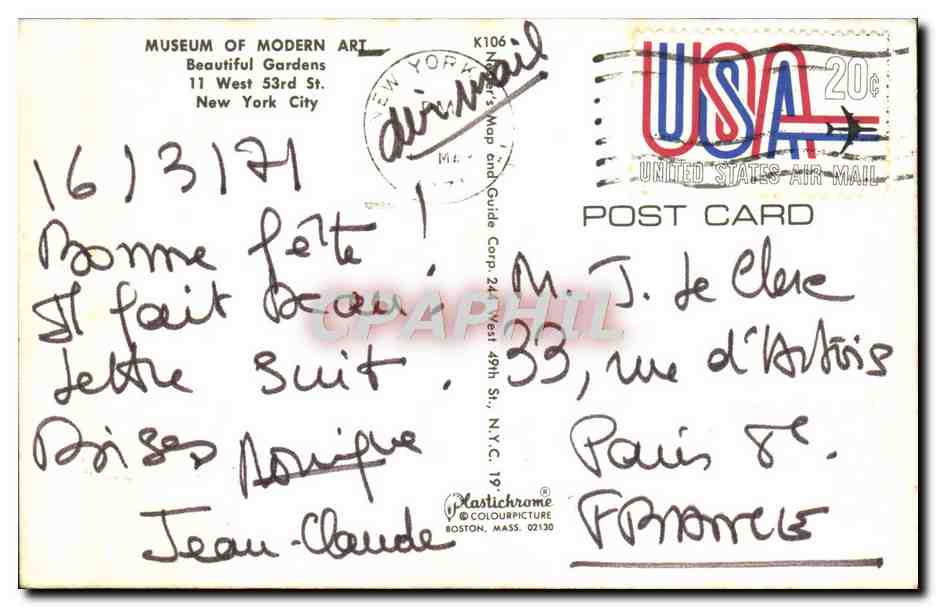 MUSEUM OF MODERN ART
Beautiful Gardens
11 West 53rd St.
New York City
K106
NEW YORK
MA
air mail
USA 20¢
UNITED STATES AIR MAIL
POST CARD
16/3/71
Bonne fête !
Il fait beau.
Lettre suit.
Bises Monique
Jean-Claude
Nester's Map and Guide Corp. 244 West 49th St., N.Y.C. 19
M. J. Le Clerc
33, rue d'Artois
Paris 8e.
FRANCE
CPAPHIL
Plastichrome ®
© COLOURPICTURE
BOSTON, MASS. 02130